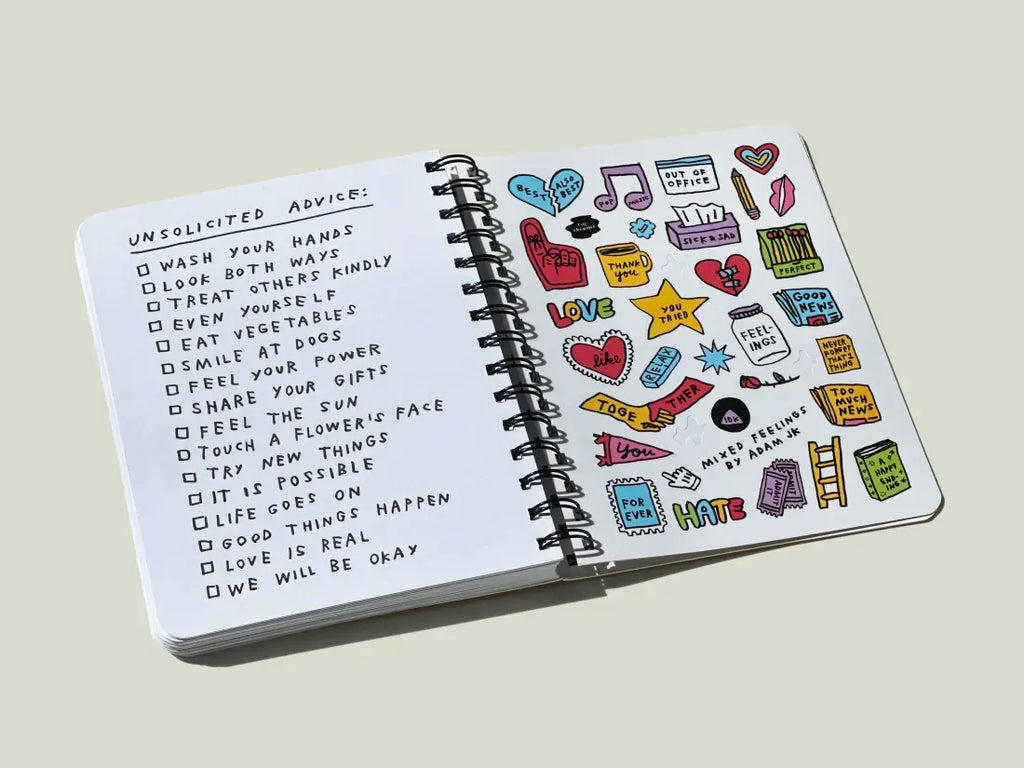 UNSOLICITED ADVICE:
WASH YOUR HANDS
LOOK BOTH WAYS
TREAT OTHERS KINDLY
EVEN YOURSELF
EAT VEGETABLES
SMILE AT DOGS
FEEL YOUR POWER
SHARE YOUR GIFTS
FEEL THE SUN
TOUCH A FLOWER'S FACE
TRY NEW THINGS
IT IS POSSIBLE
LIFE GOES ON
GOOD THINGS HAPPEN
LOVE IS REAL
WE WILL BE OKAY
BEST
ALSO
BEST
POP MUSIC
OUT OF
OFFICE
SICK & SAD
THANK
YOU
PERFECT
LOVE
YOU
TRIED
FEEL-
INGS
GOOD
NEWS
like
RELAX
NEVER
FORGET
THAT 1
THING
TOGE
THER
IDK
TOO
MUCH
NEWS
You
MIXED FEELINGS
BY ADAM JK
FOR
EVER
HATE
ADMIT
IT
ADMIT
A
HAPPY
END-
ING